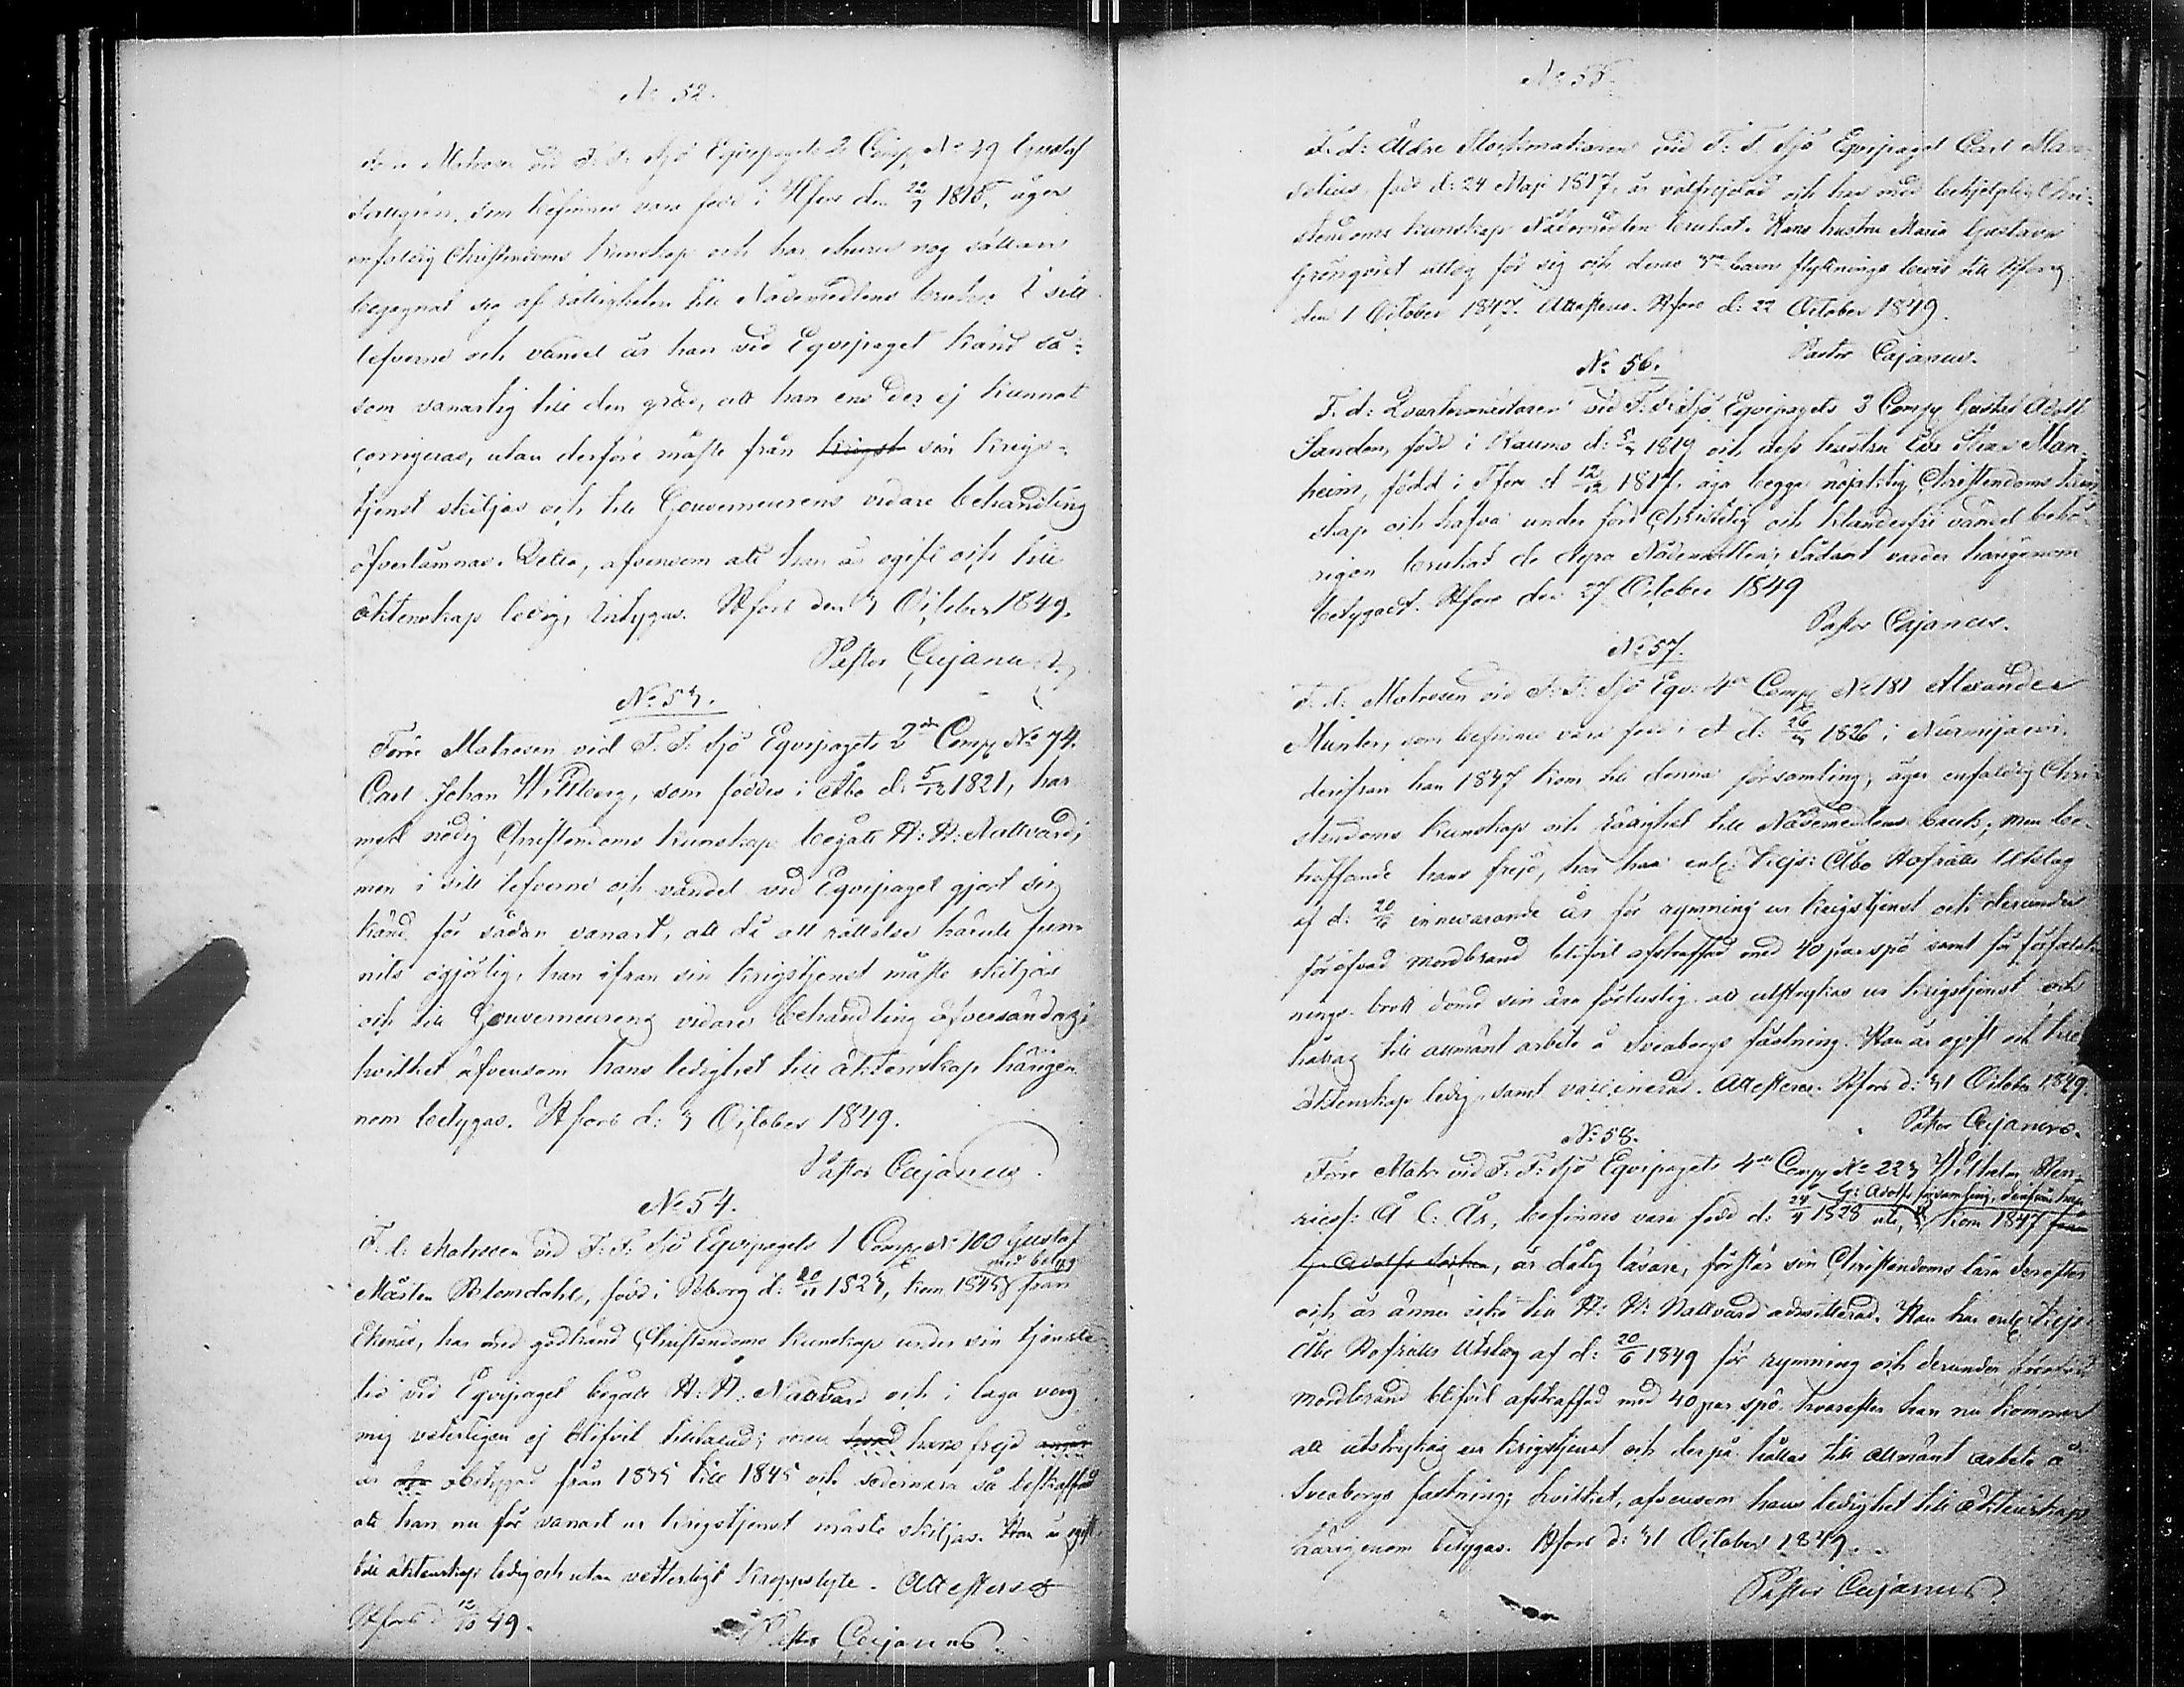 No 52.
Matrosen vid F: F: Sjö Eqvipagets 2 Comp No 49 Gustaf
som befinnes vara född i Hfors den 22/7 1818, äger
enfaldig Christendoms kunskap och har ehuru nog sällan
begagnat sig af rättigheten till Nådemedlens bruk. I sitt
lefverne och vandel är han vid Eqvipaget känd så-
som vanartig till den grad, att han ej kunnat
corrigeras, utan derföre måste från krigst sin krigs-
tjenst skiljas och till Gouverneurens vidare behandling
öfverlämnas. Detta, äfvensom att han är ogift och till
äktenskap ledig, intygas. Hfors den 3 October 1849.
Pastor Cajanus
No 53.
Förre Matrosen vid F. F. Sjö Eqvipagets 2dra Comp No 74.
Carl Johan Willberg, som föddes i Åbo d: 5/12 1821, har
med nödig Christendoms kunskap begått H: H: Nattvard;
men i sitt lefverne och vandel vid Eqvipaget gjort sig
känd för sådan vanart, att då all rättelse härute fun-
nits ogjörlig, han ifrån sin krigstjenst måste skiljas
och till Gouverneurens vidare behandling öfversändas;
hvilket äfvensom hans ledighet till äktenskap härige-
nom betygas. Hfors d: 3 October 1849.
Pastor Cajanus
No 54.
F. d: Matrosen vid F: F: Sjö Eqvipagets 1 Comp No 100 Gustaf
med betyg
Mårten Blomdahl, född i Borg d: 20/11 1823, kom 1845 från
Ekenäs, har med godkänd Christendoms kunskap under sin tjenste-
tid vid Eqvipaget begått H: H: Nattvard och i laga väg
mig veterligen ej blifvit tilltalad; men hans frejd
är obetygad från 1835 till 1845 och sedermera så beskaffad
att han nu för vanart ur krigstjenst måste skiljas. Han är ogift
till äktenskap ledig och utan vetterligt kroppslyte. Attesteras
Hfors d 12/10 49.
Pastor Cajanus
No 55.
F. d: Äldre vid F: F. Sjö Eqvipaget Carl
född d: 24 Maji 1817, är välfrejdad och har med behjelplig Chri-
stendoms kunskap Nådemedlen brukat. Hans hustru Maria Gustava
Grönqvist uttog för sig och deras barn flyttnings bevis till
den 1 October 1847. Attesteras. Hfors d: 22 October 1849.
Pastor Cajanus.
No 56.
F. d: Qvartermästaren vid F: F: Sjö Eqvipagets 3 Comp Gustaf Adolf
Sanden, född i Raumo d: 1819 och dess hustru Eva Man-
heim, född i d 12/12 1817, äga begge nöjaktig Christendoms kun-
skap och hafva under förd Christelig och klanderfri vandel behö-
rigen brukat de dyra Nådemedlen; sådant varder härigenom
betygadt. Hfors den 27 October 1849
Pastor Cajanus.
No 57.
F. d: Matrosen vid F: F: Sjö Eqv: 4de Comp No 181 Alexander
Munter, som befinnes vara född d: 26/3 1826 i Nurmijärvi,
derifrån han 1847 kom till denna församling, äger enfaldig Chri-
stendoms kunskap och rättighet till Nådemedlens bruk; men be-
träffande hans frejd, har han enl: Kejs: Åbo Hofrätts Utslag
af d: 20/6 innevarande år för rymning ur krigstjenst och derunder
föröfvad mordbrand blifvit afstraffad med 40 par spö samt för
nings brott dömd sin ära förlustig att utstrykas ur krigstjenst och
hållas till allmänt arbete å Sveaborgs fästning. Han är ogift och till
äktenskap ledig, samt vaccinerad. Attesteras. Hfors d: 31 October 1849.
Pastor Cajanus.
No 58.
Förre Matr vid F: F: Sjö Eqvipagets 4de Comp No 223 Wilhelm Hen-
G: Adolfs församling, derifrån han
befinnes vara född d: 24/4 1828 kom 1847 från
G: Adolfs är dålig läsare, förstår sin Christendoms lära derefter
och är ännu icke till H: H: Nattvard admitterad. Han har enl: Kejs
Åbo Hofrätts Utslag af d: 20/6 1849 för rymning och derunder föröfvad
mordbrand blifvit afstraffad med 40 par spö hvarefter han nu kommer
att utstrykas ur krigstjenst och derpå hållas till allmänt arbete å
Sveaborgs fästning; hvilket, äfvensom hans ledighet till äktenskap
härigenom betygas. Hfors d: 31 October 1849.
Pastor Cajanus